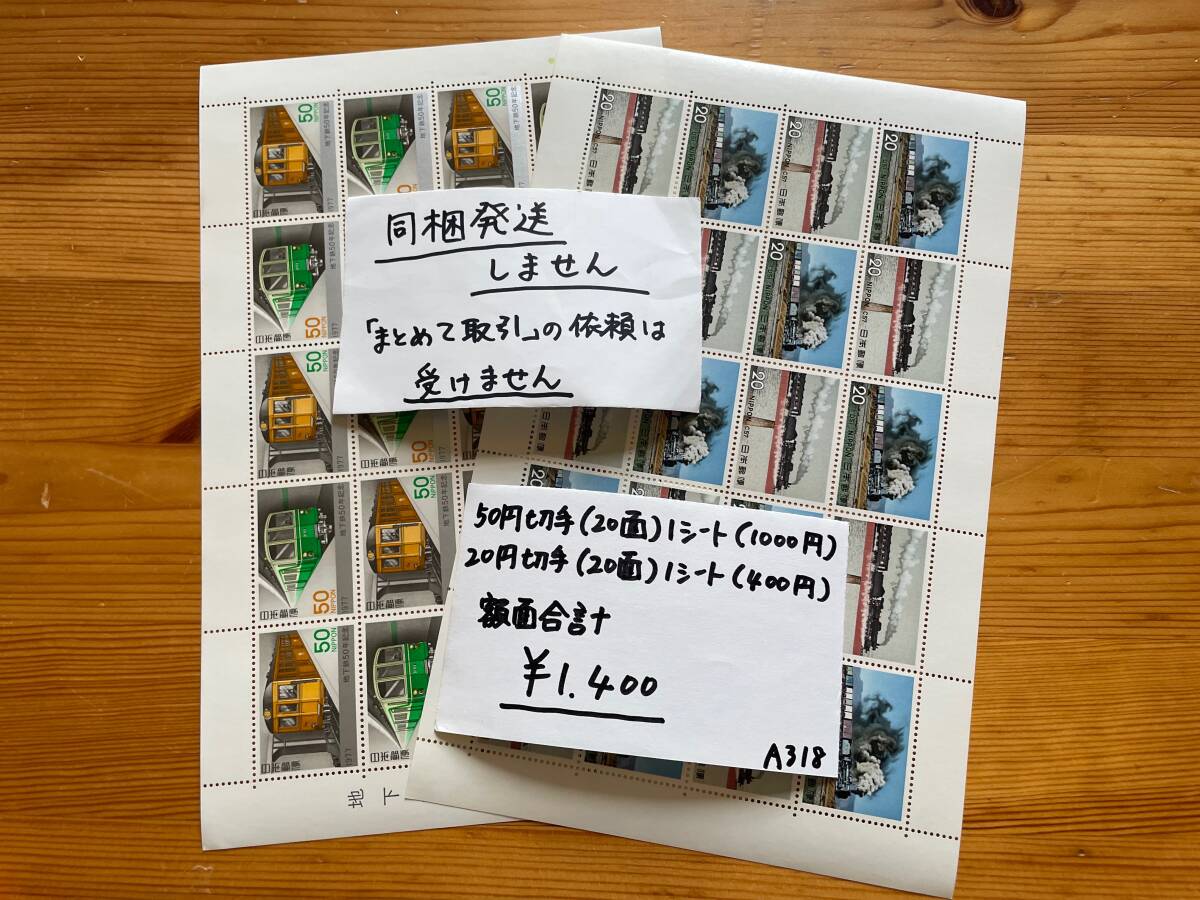 同梱発送
しません
「まとめて取引」の依頼は
受けません
50円切手(20面)1シート(1000円)
20円切手(20面)1シート(400円)
額面合計
¥1.400
A318
50
NIPPON
地下鉄50年記念
日本郵便
1977
20
NIPPON
C57
日本郵便
地下